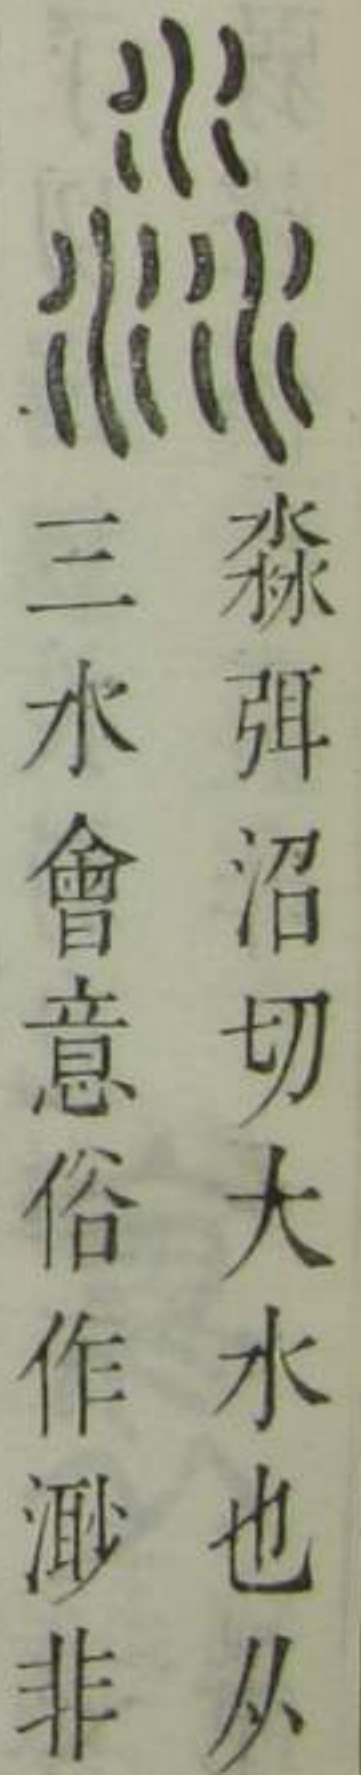 淼
淼弭沼切大水也从
三水會意俗作渺非